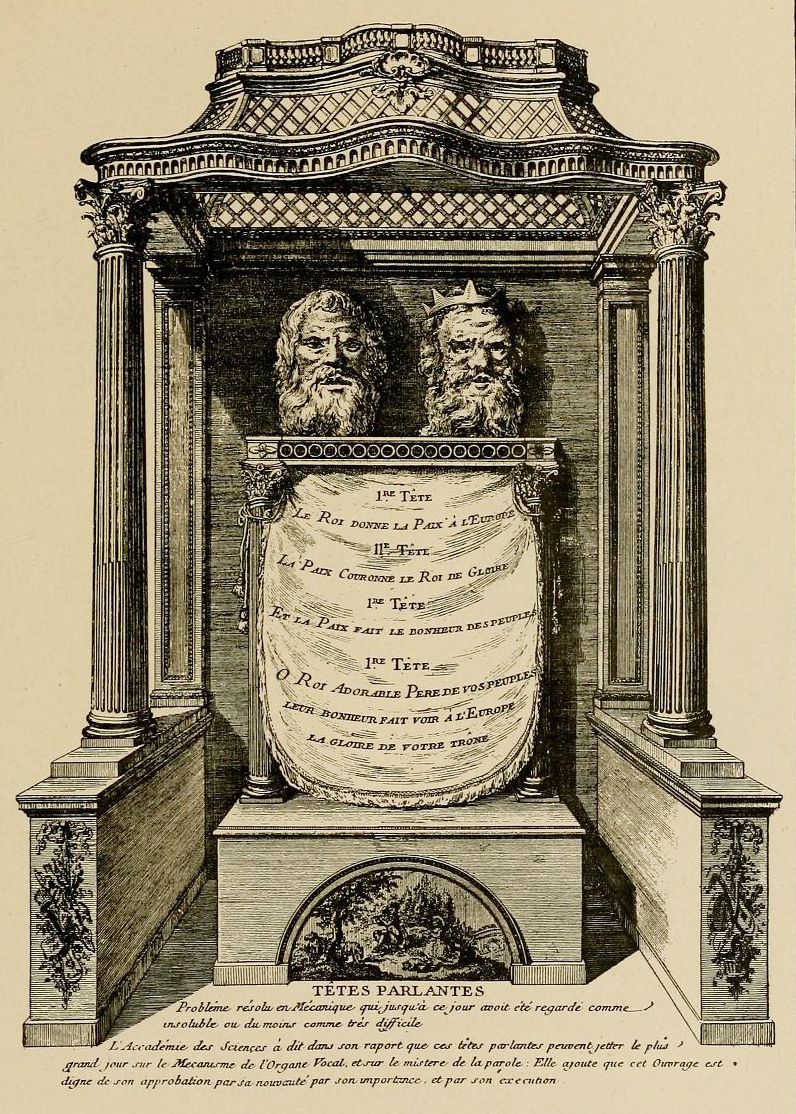 1.RE TÊTE
LE ROI DONNE LA PAIX À L'EUROPE
IIE. TÊTE
LA PAIX COURONNE LE ROI DE GLOIRE
1RE TÊTE
ET LA PAIX FAIT LE BONHEUR DES PEUPLES
1RE TÊTE
O ROI ADORABLE PERE DE VOS PEUPLES
LEUR BONHEUR FAIT VOIR A L'EUROPE
LA GLOIRE DE VOTRE TRÔNE
TÊTES PARLANTES
Problême résolu en Mécanique qui jusqu'à ce jour avoit été regardé comme
insoluble ou du moins comme trés difficile
L'Accadémie des Sciences à dit dans son raport que ces têtes parlantes peuvent jetter le plus
grand jour sur le Mecanisme de l'Organe Vocal, et sur le mistere de la parole : Elle ajoute que cet Ouvrage est
digne de son approbation par sa nouvauté par son importance. et par son éxecution.